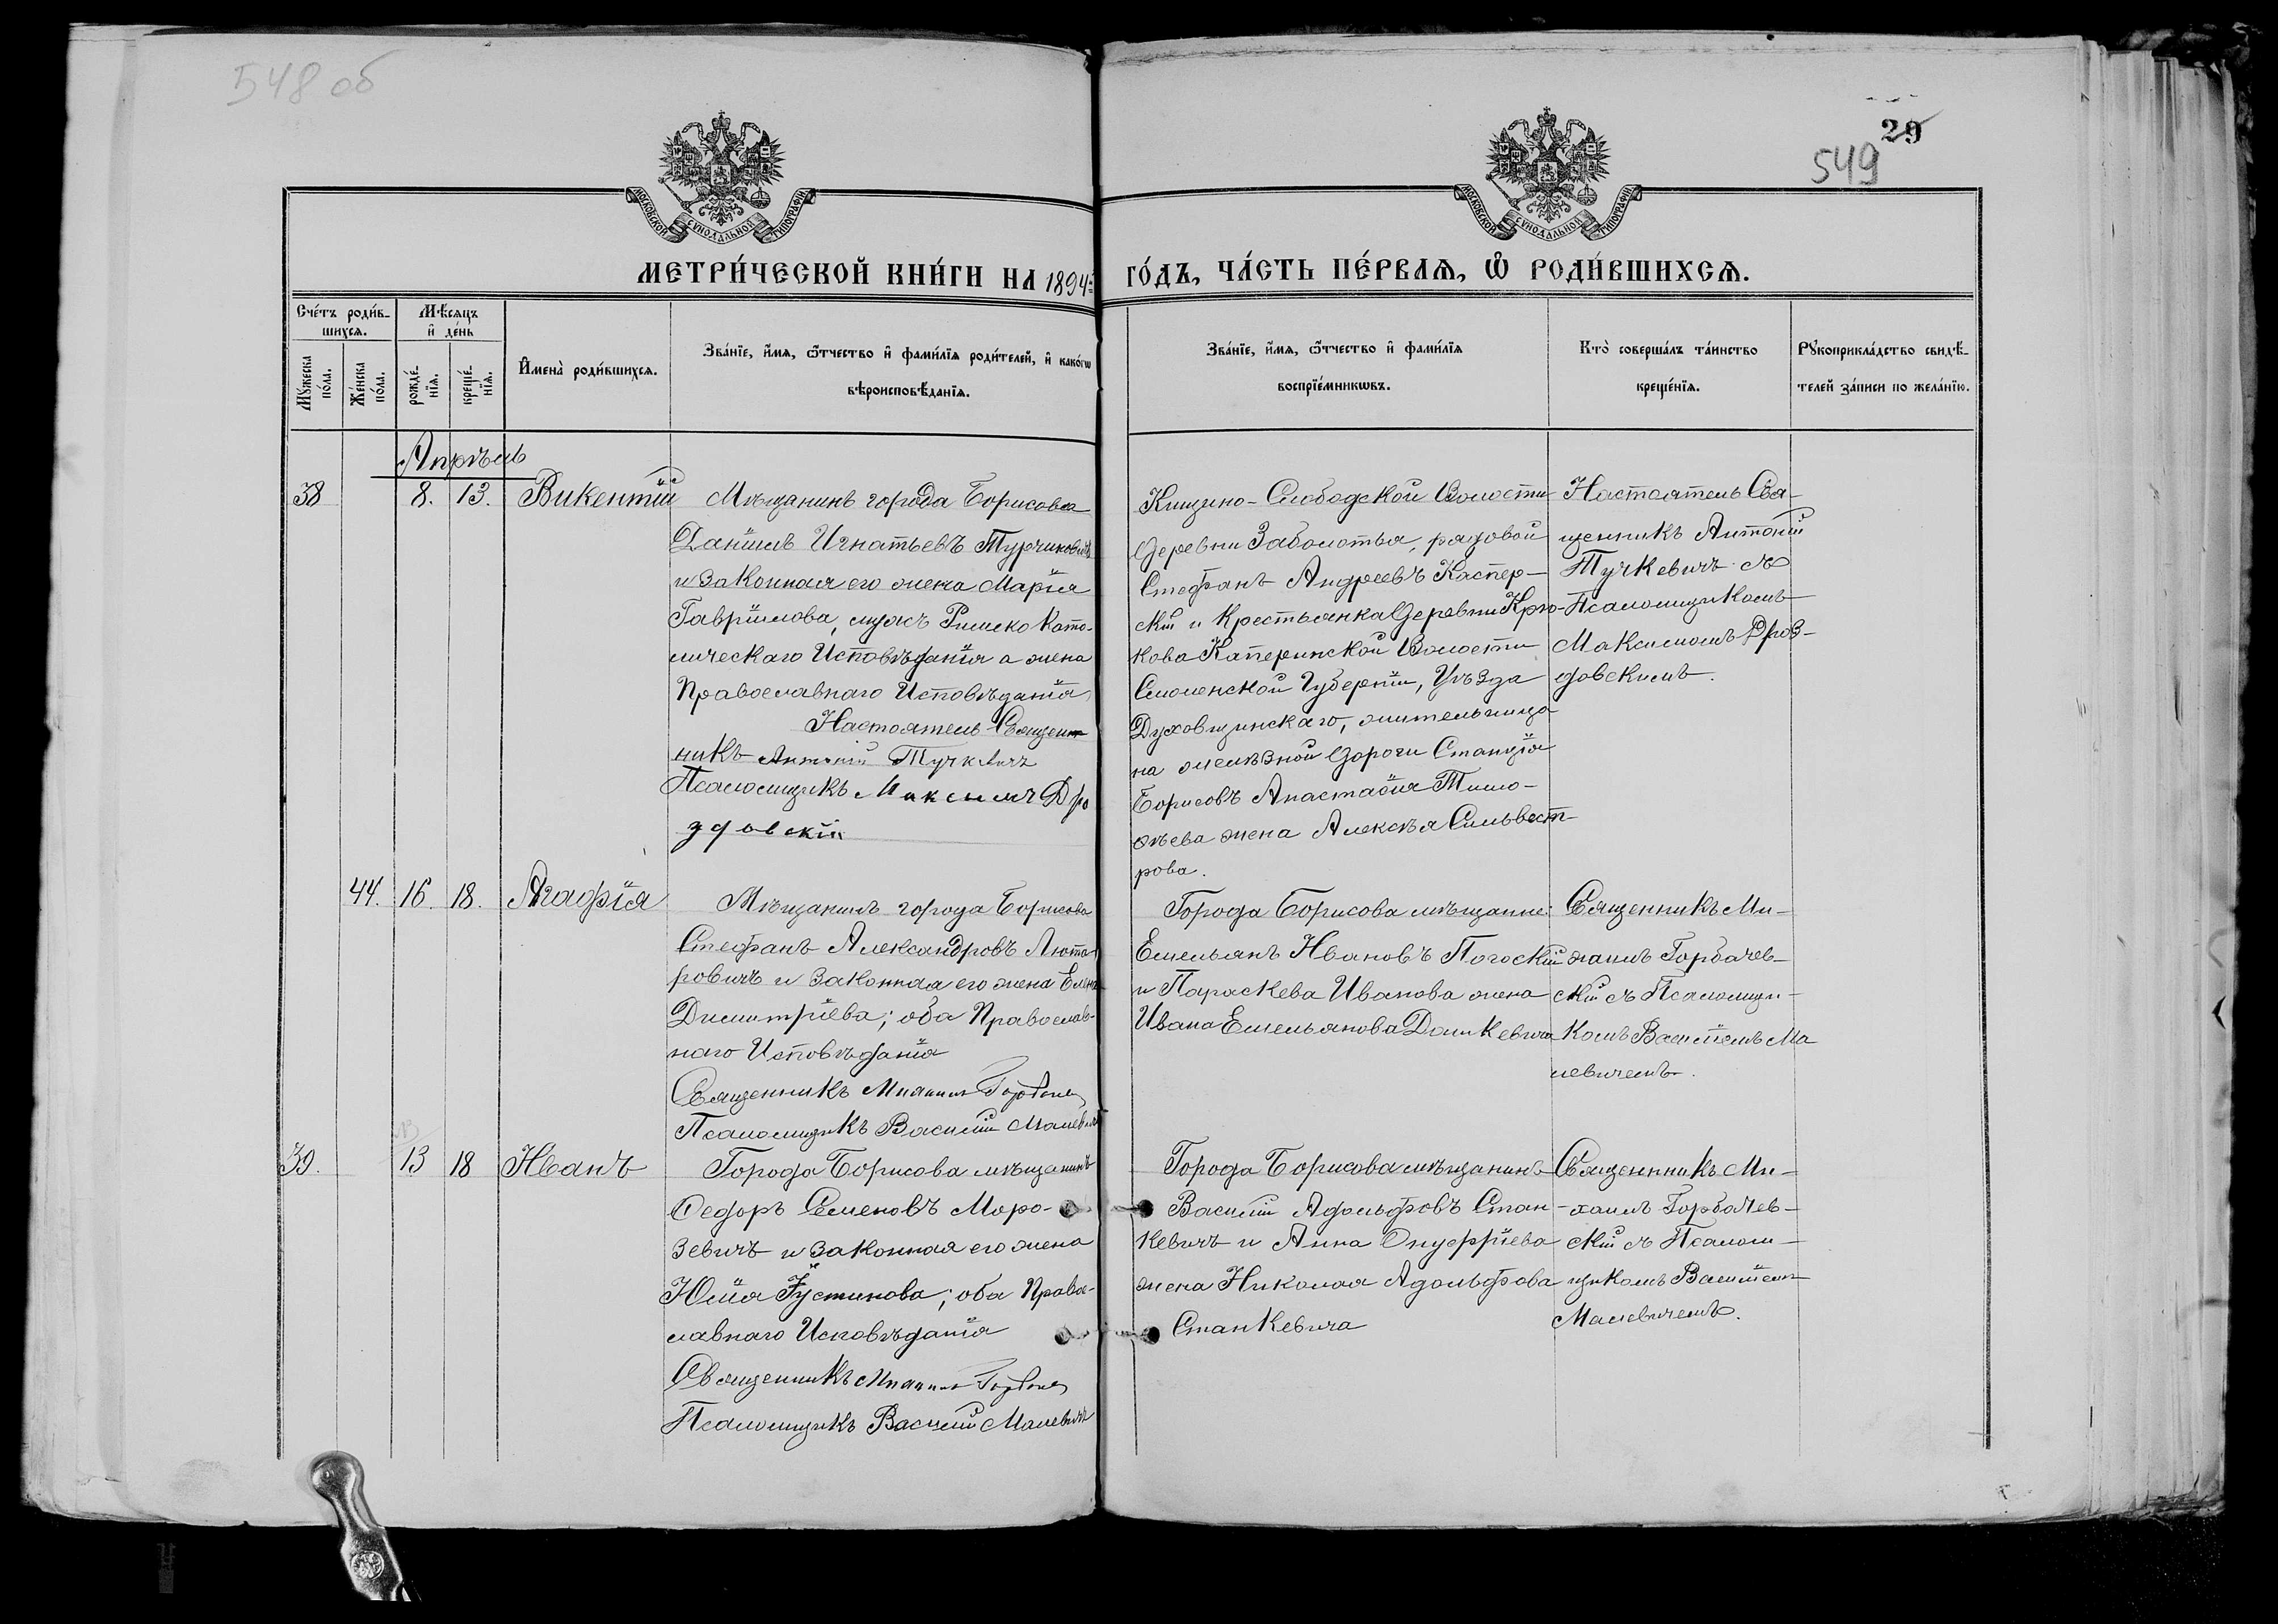 548 об
29
549
МОСКОВСКОЙ СѴНОДАЛЬНОЙ ТИПОГРАФІИ
МОСКОВСКОЙ СѴНОДАЛЬНОЙ ТИПОГРАФІИ
МЕТРИ́ЧЕСКОЙ КНИ́ГИ НА 1894й ГО́ДЪ, ЧА́СТЬ ПЕ́РВАѦ, Ѿ РОДИ́ВШИХСѦ.
Сче́тъ роди́в-
шихсѧ.
Мѣ́сѧцъ
и҆ де́нь
Мꙋ́жеска
по́ла.
Же́нска
по́ла.
рожде́-
нїѧ.
креще́-
нїѧ.
И҆мена̀ роди́вшихсѧ.
Зва́нїе, и҆́мѧ, ѻ҆́тчество и҆ фами́лїѧ роди́телей, и҆ како́гѡ
вѣроисповѣ́данїѧ.
Зва́нїе, и҆́мѧ, ѻ҆́тчество и҆ фами́лїѧ
воспрїе́мникѡвъ.
Кто̀ соверша́лъ та́инство
креще́нїѧ.
Рꙋкоприкла́дство свидѣ́-
телей за́писи по жела́нїю.
Апрѣль
38 8. 13. Викентій
Мѣщанинъ города Борисова
Даніилъ Игнатьевъ Турчиновичъ
и законная его жена Марія
Гавріилова, мужъ Римско Като-
лическаго Исповѣданія а жена
Православнаго Исповѣданія
Настоятель Священ-
никъ Антоній Тучкевичъ
Псаломщикъ Максимъ Дро
здовскій
Кищино-Слободской Волости
деревни Заболотья, рядовой
Стефанъ Андреевъ Каспер-
скій и Крестьянка деревни Крю-
кова Катеринской Волости
Смоленской Губерніи, Уѣзда
Духовщинскаго, жительница
на желѣзной дороги Станція
Борисовъ Анастасія Тимо-
ѳѣева жена Алексѣя Сильвест-
рова.
Настоятель Свя-
щенникъ Антоній
Тучкевичъ съ
Псаломщикомъ
Максимомъ Дроз-
довскимъ.
44. 16. 18. Агафія
Мѣщанинъ города Борисова
Стефанъ Александровъ Люто
ровичъ и законная его жена Елена
Димитріева; оба Православ-
наго Исповѣданія
Священникъ Михаилъ Горбачев
Псаломщикъ Василій Малевичъ
Города Борисова мѣщанне:
Емельянъ Ивановъ Погоскій
и Параскева Иванова жена
Ивана Емельянова Дашкевича
Священникъ Ми-
хаилъ Горбачев-
скій съ Псаломщи-
комъ Василіемъ Ма
левичемъ.
39. 13 18 Иванъ
Города Борисова мѣщанинъ
Ѳедоръ Семеновъ Моро-
зевичъ и законная его жена
Юлія Іустинова; оба Право-
славнаго Исповѣданія
Священникъ Михаилъ Горбачев
Псаломщикъ Василій Малевичъ
Города Борисова мѣщанинъ
Василій Адольфовъ Стан-
кевичъ и Анна Онуфріева
жена Николая Адольфова
Станкевича
Священникъ Ми-
хаилъ Горбачев-
скій съ Псалом-
щикомъ Василіемъ
Малевичемъ.